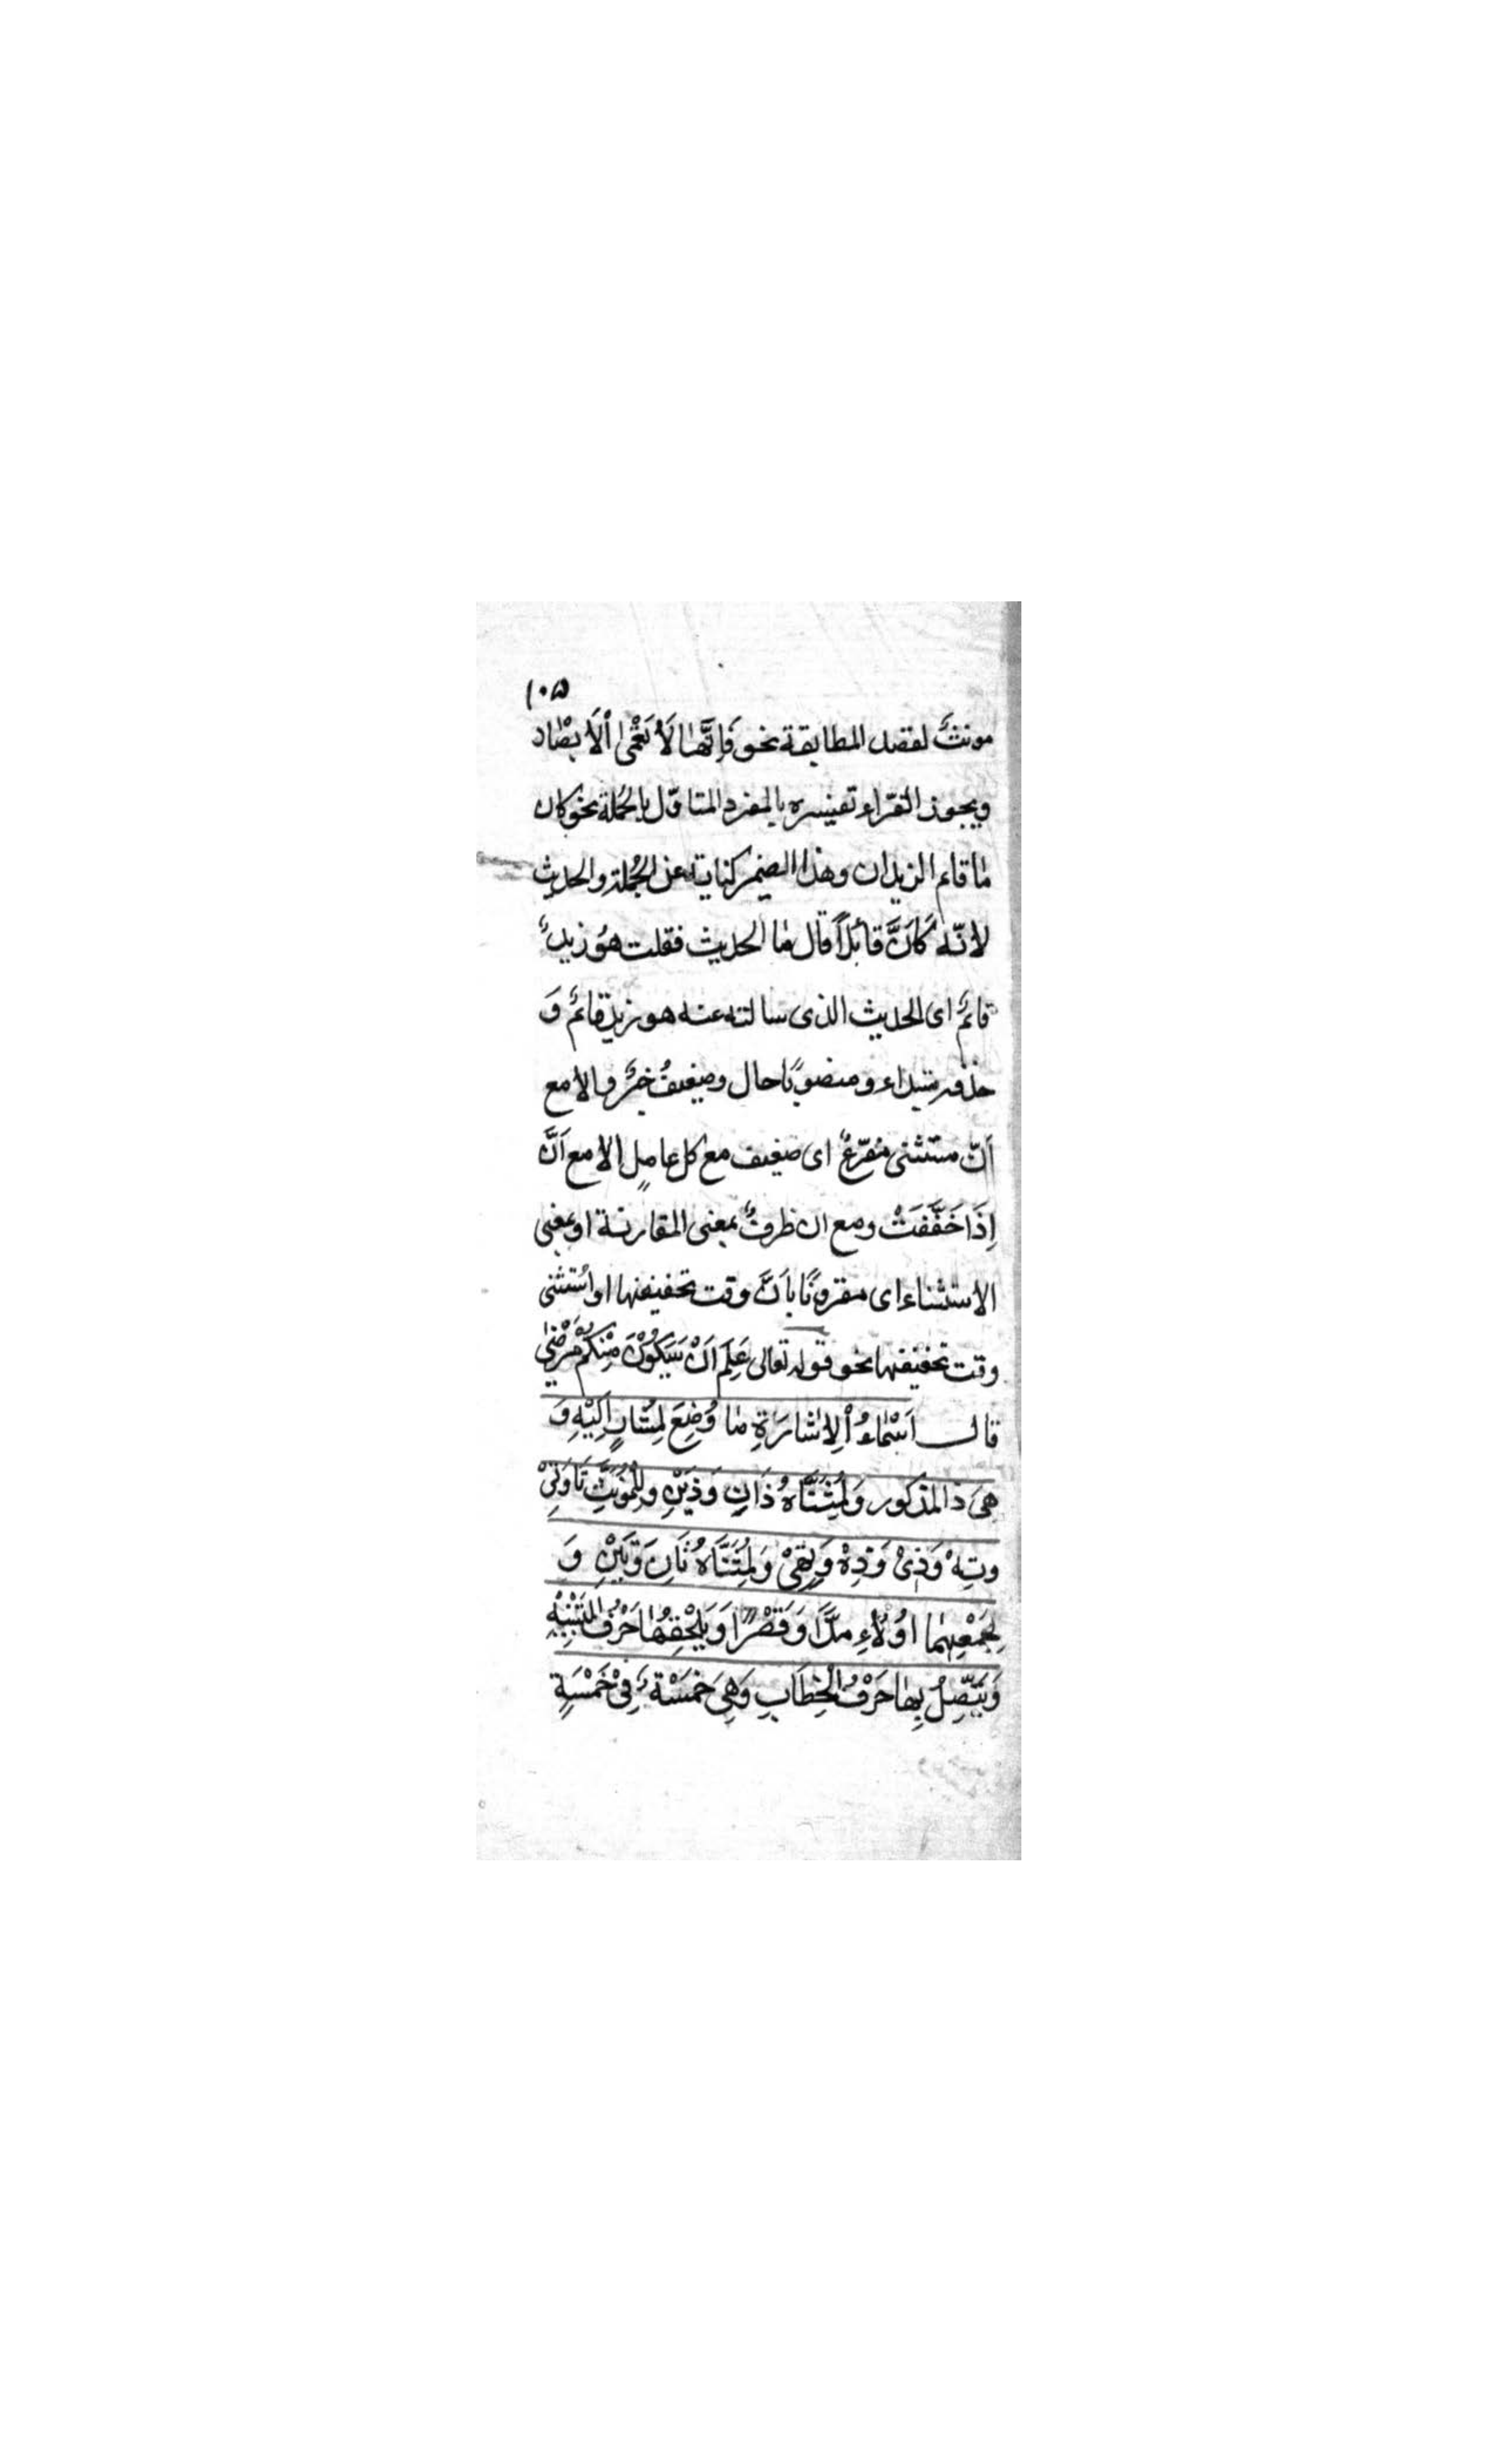 ١٠٥
مونثٌ لقصد المطابقة نحو فَاِنَّهٰا لَاْ تَعْمٰى اْلَاَبْصٰار
ويجوز الفرّاء تفسيره بالمفرد المتاوّل بالجُملة نحو كان
مٰا قاءم الزيدان وهٰذا الضمير كناية عن الجُملة والحديث
لانّه كَاَنَّ قائلاً قال مٰا الحديث فقلت هُو زيدٌ
قائمٌ اى الحديث الذى سالته عنه هو زيدٌ قائمٌ وَ
حذفه مبتداء ومنصوبًا حال وضعيفٌ خبرٌ والا مع
اَنّ مستثنى مُفرّغٌ اى ضعيف مع كل عاملٍ الا مع اَنَّ
اِذَا خَفَّفَتْ ومع ان ظرفٌ بمعنى المقارنة او بمعنى
الاستثناء اى مقرونًا باَنَّ وقت تخفيفها او اسُتثنى
وقت تخفيفها نحو قوله تعالى عَلِمَ اَنْ سَيَكُوْنُ مِنْكُمْ مَرْضٰى
قال اَسْمٰاءُ اْلاِشٰارَةِ مٰا وُضِعَ لِمُشٰارٍ اِلَيْهِ وَ
هِىَ ذا المذكور وَلِمُثَنّٰاهُ ذَانِ وَذَيْنِ وَلِلْمُونَثِ تَا وَتِىْ
وتِهْ وَذِىْ وَذِهْ وَتِهِىْ وَلِمُثَنَّاهُ تَانِ وَتَيْنِ وَ
لِجَمْعِهِمٰا اُوْلٰاءِ مدًّا وَقَصْرًا وَيَلْحِقُهٰا حَرْفُ التَنْبِيْهِ
وَيَتَّصِلُ بِهٰا حَرْفُ الْخِطَابِ وَهِىَ خَمْسَةٌ فِىْ خَمْسَةٍ